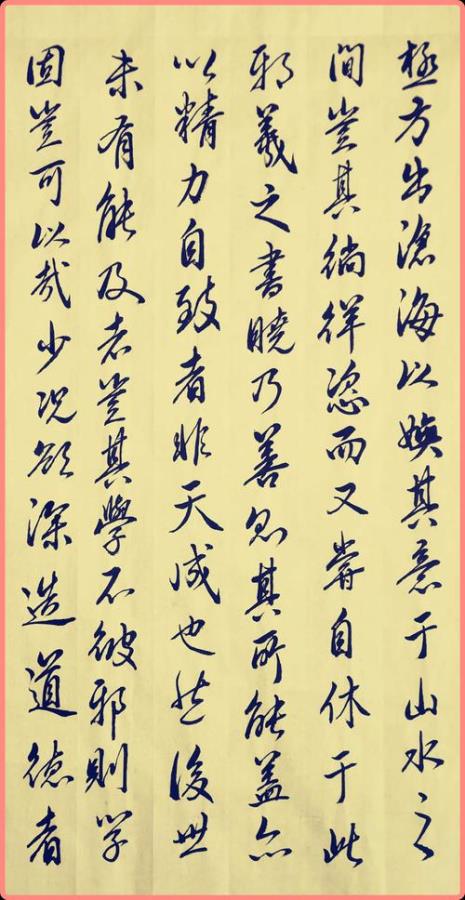 極方出滄海以娛其意于山水之
間豈其徜徉恣而又嘗自休于此
邪羲之書曉乃善其所能蓋亦
以精力自致者非天成也然後世
未有能及者豈其學不彼邪則学
固豈可以哉少況欲深造道德者